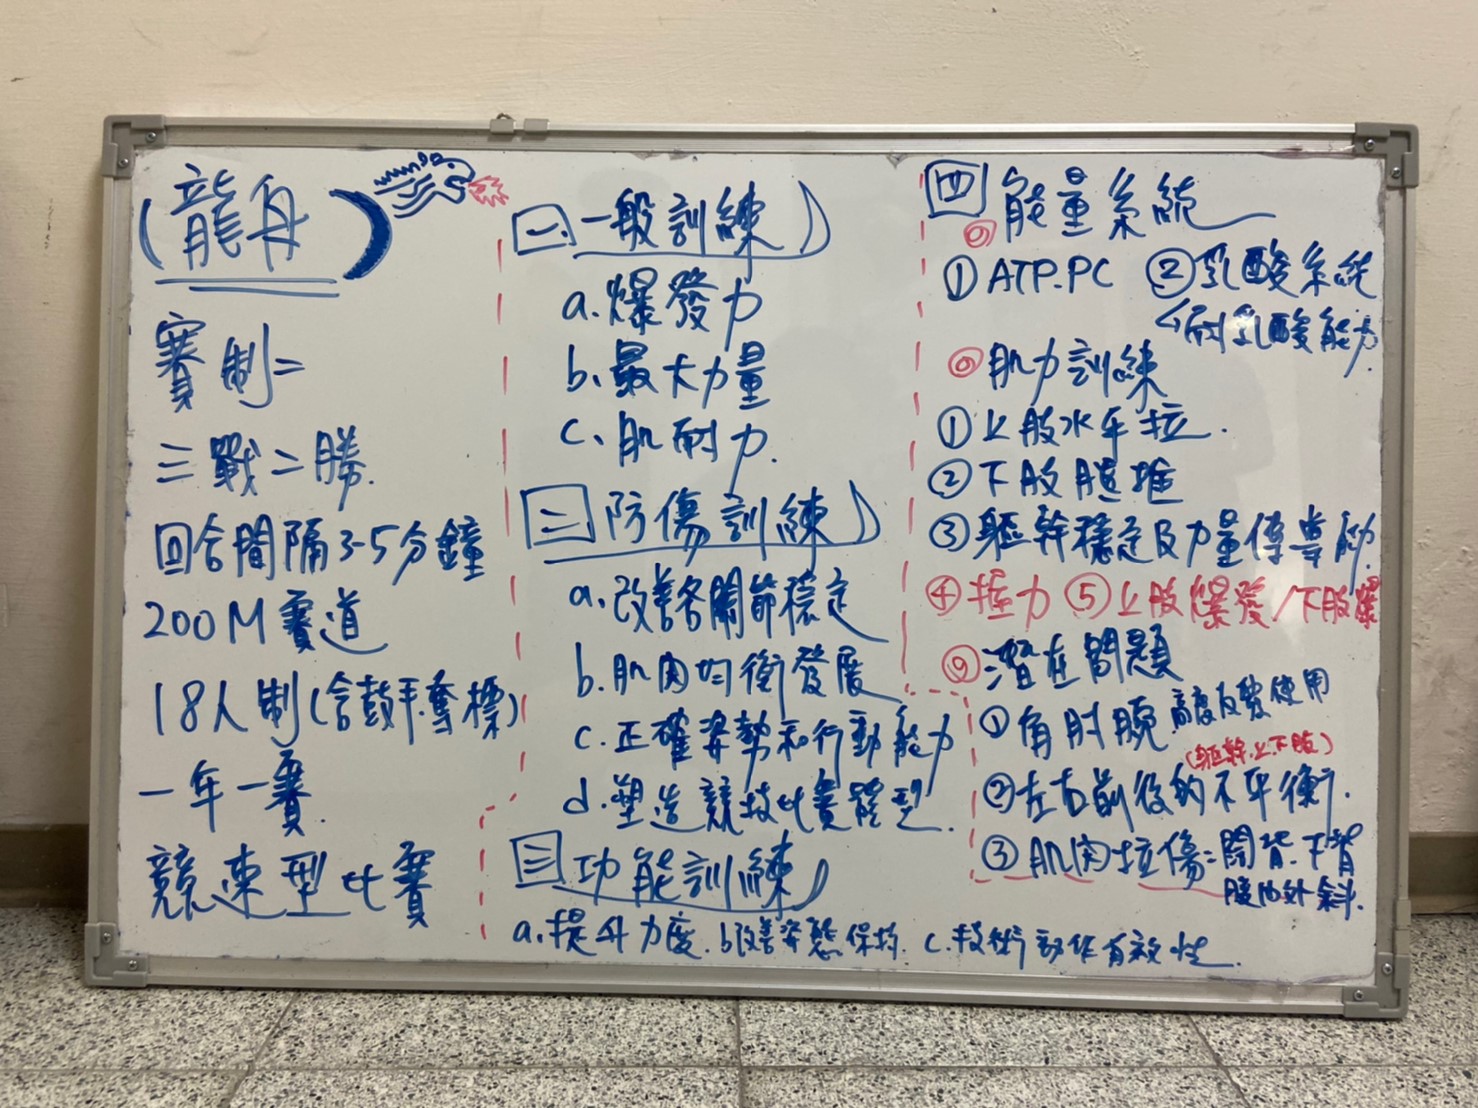 (龍舟)
賽制=
三戰二勝.
回合間隔3-5分鐘
200M賽道
18人制(含鼓手.奪標)
一年一賽.
競速型比賽
一、一般訓練
a.爆發力
b.最大力量
c.肌耐力.
二 防傷訓練
a.改善各關節穩定
b.肌肉均衡發展
c.正確姿勢和行動能力
d.塑造競技比賽體型.
三 功能訓練
a.提升力度.b改善姿態保持.c.技術動作有效性.
四 能量系統
①ATP.PC ②乳酸系統
↳耐乳酸能力.
肌力訓練
①上肢水平拉.
②下肢腿推
③軀幹穩定及力量傳導能力.
④握力⑤上肢爆發/下肢爆
潛在問題
①肩肘腕高度反覆使用
(軀幹.上下肢)
②左右前後的不平衡.
③肌肉拉傷:闊背.下背
腹內外斜.